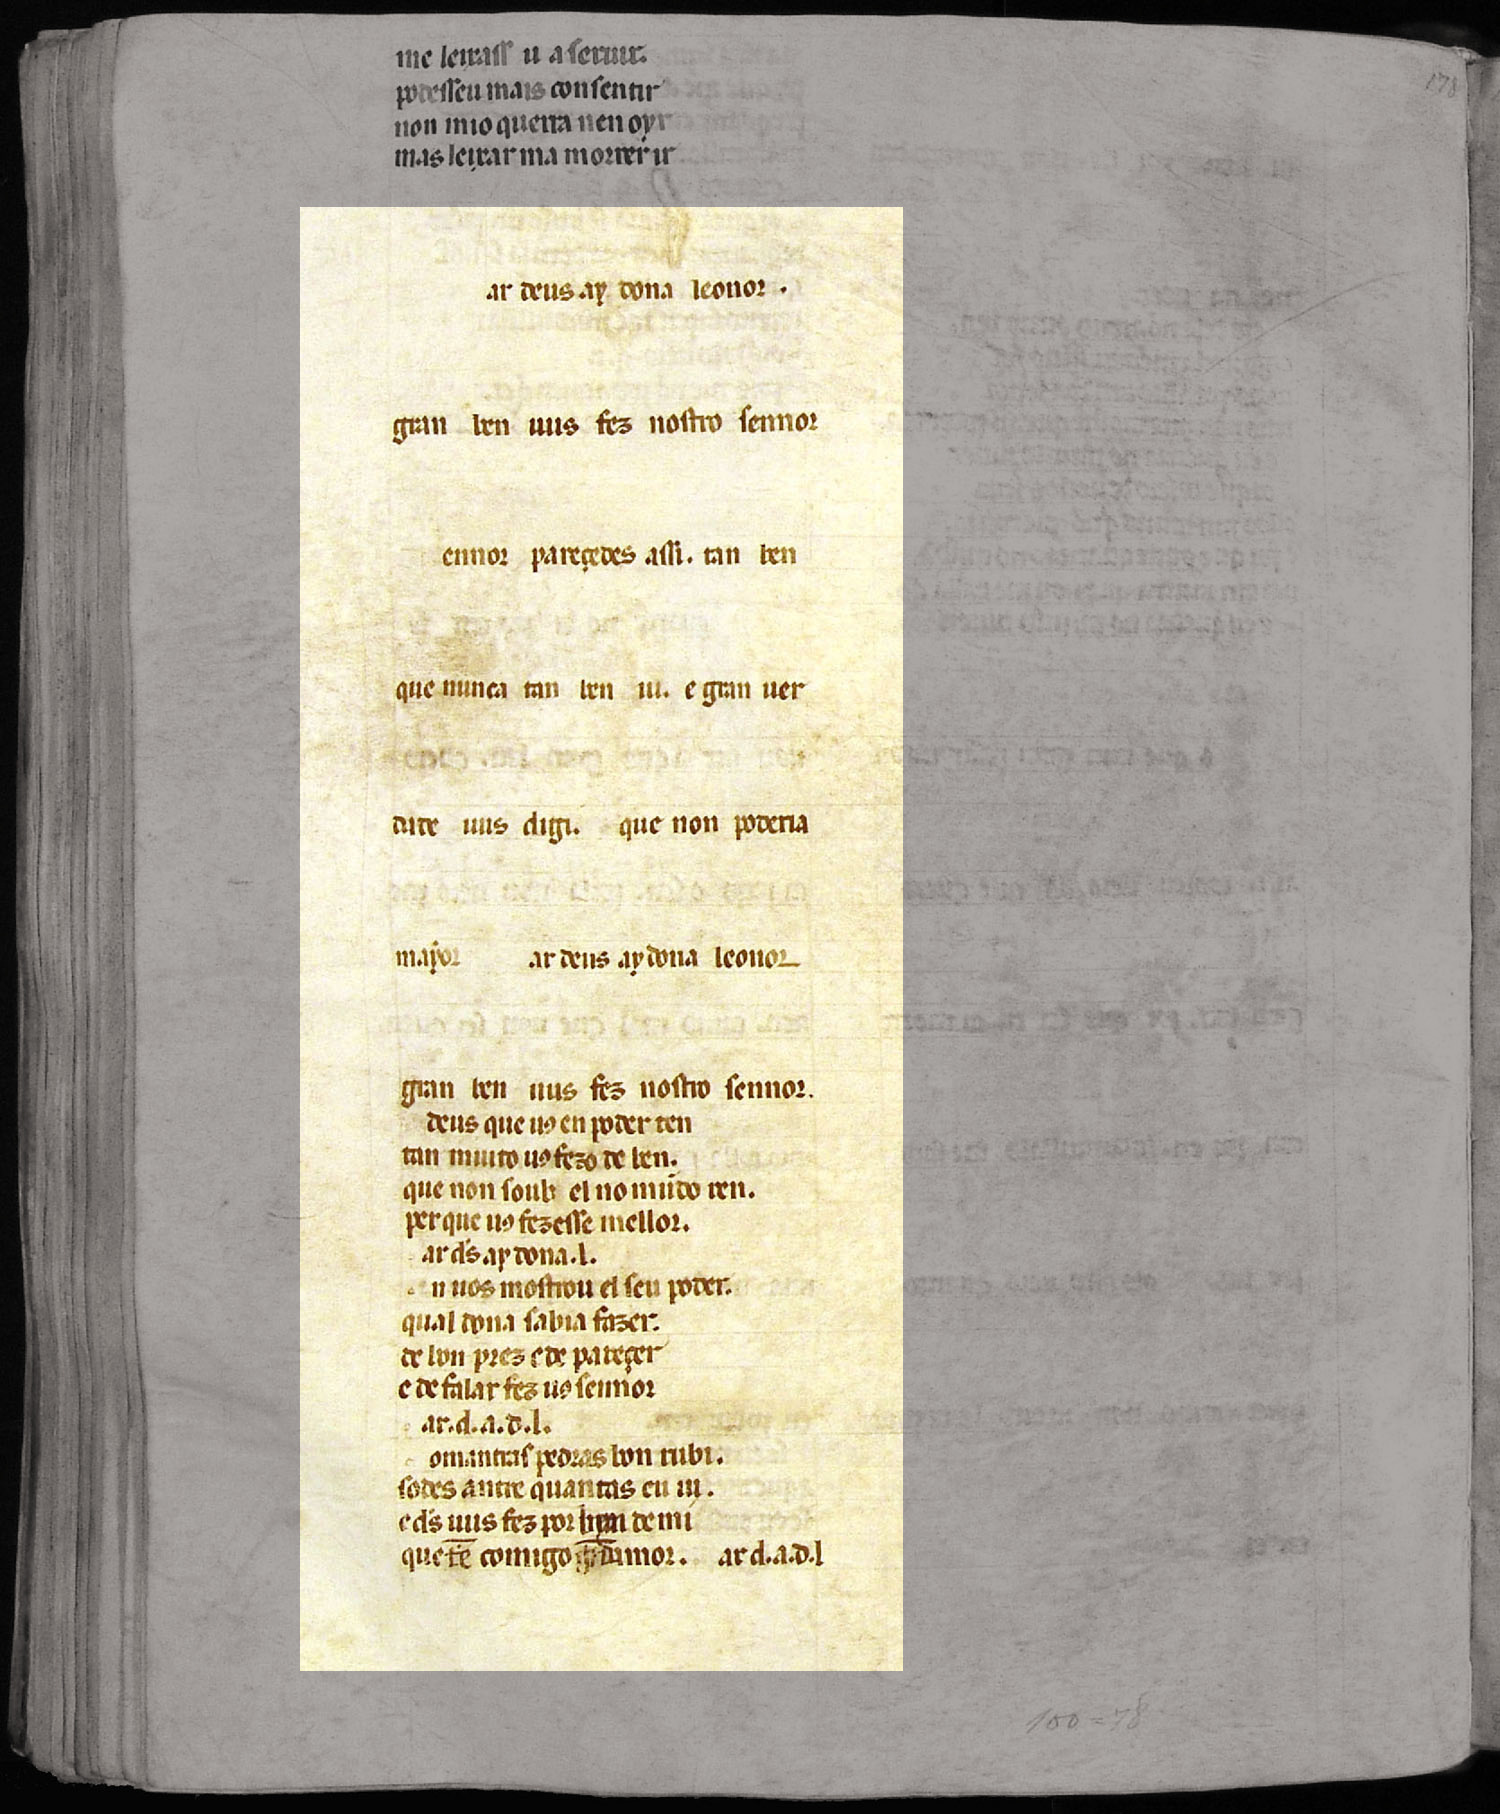 me leixass u a seruir.
podesseu mais consentir
non mio querra nen oyr
mas leixar ma morrer ir
ar deus ay dona leonor .
gran ben uus fez nostro sennor
ennor pareçedes assi. tan ben
que nunca tan ben ui. e gran uer
dade uus digi. que non poderia
mayor ar deus ay dona leonor
gran ben uus fez nostro sennor.
deus que uꝯ en poder ten
tan muito uꝯ fezo de ben.
que non soub el no mũdo ren.
per que uꝯ fezesse mellor.
ar d's ay dona .l.
n uos mostrou el seu poder.
qual dona sabia fazer.
de bon prez e de pareçer
e de falar fez uꝯ sennor
ar.d.a.d.l.
om antras pedras bon rubi.
sodes antre quantas eu ui.
e d's uus fez por ben de mi
que tẽ comigo amor. ar d.a.d.l
178
100=78